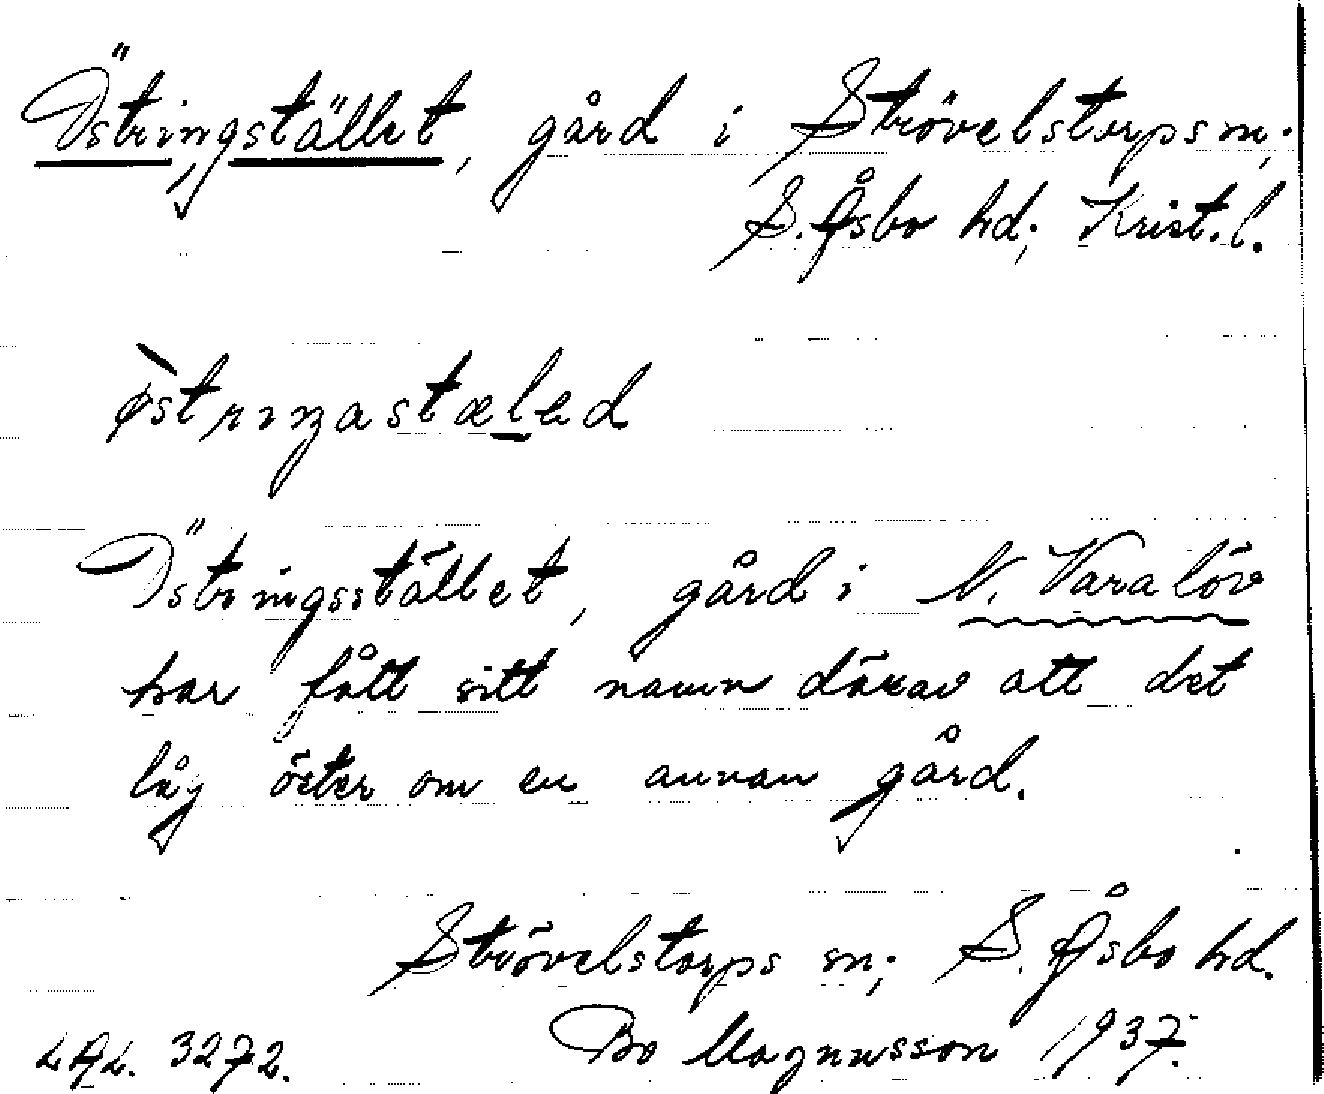 Östringstället, gård i Strövelstorps sn;
S. Åsbo hd; Krist. l.
østrıŋastæləd
Östringsstället, gård i N. Varalöv
har fått sitt namn därav att det
låg öster om en annan gård.
Strövelstorps sn; S. Åsbo hd.
LAL. 3272. Bo Magnusson 1937.